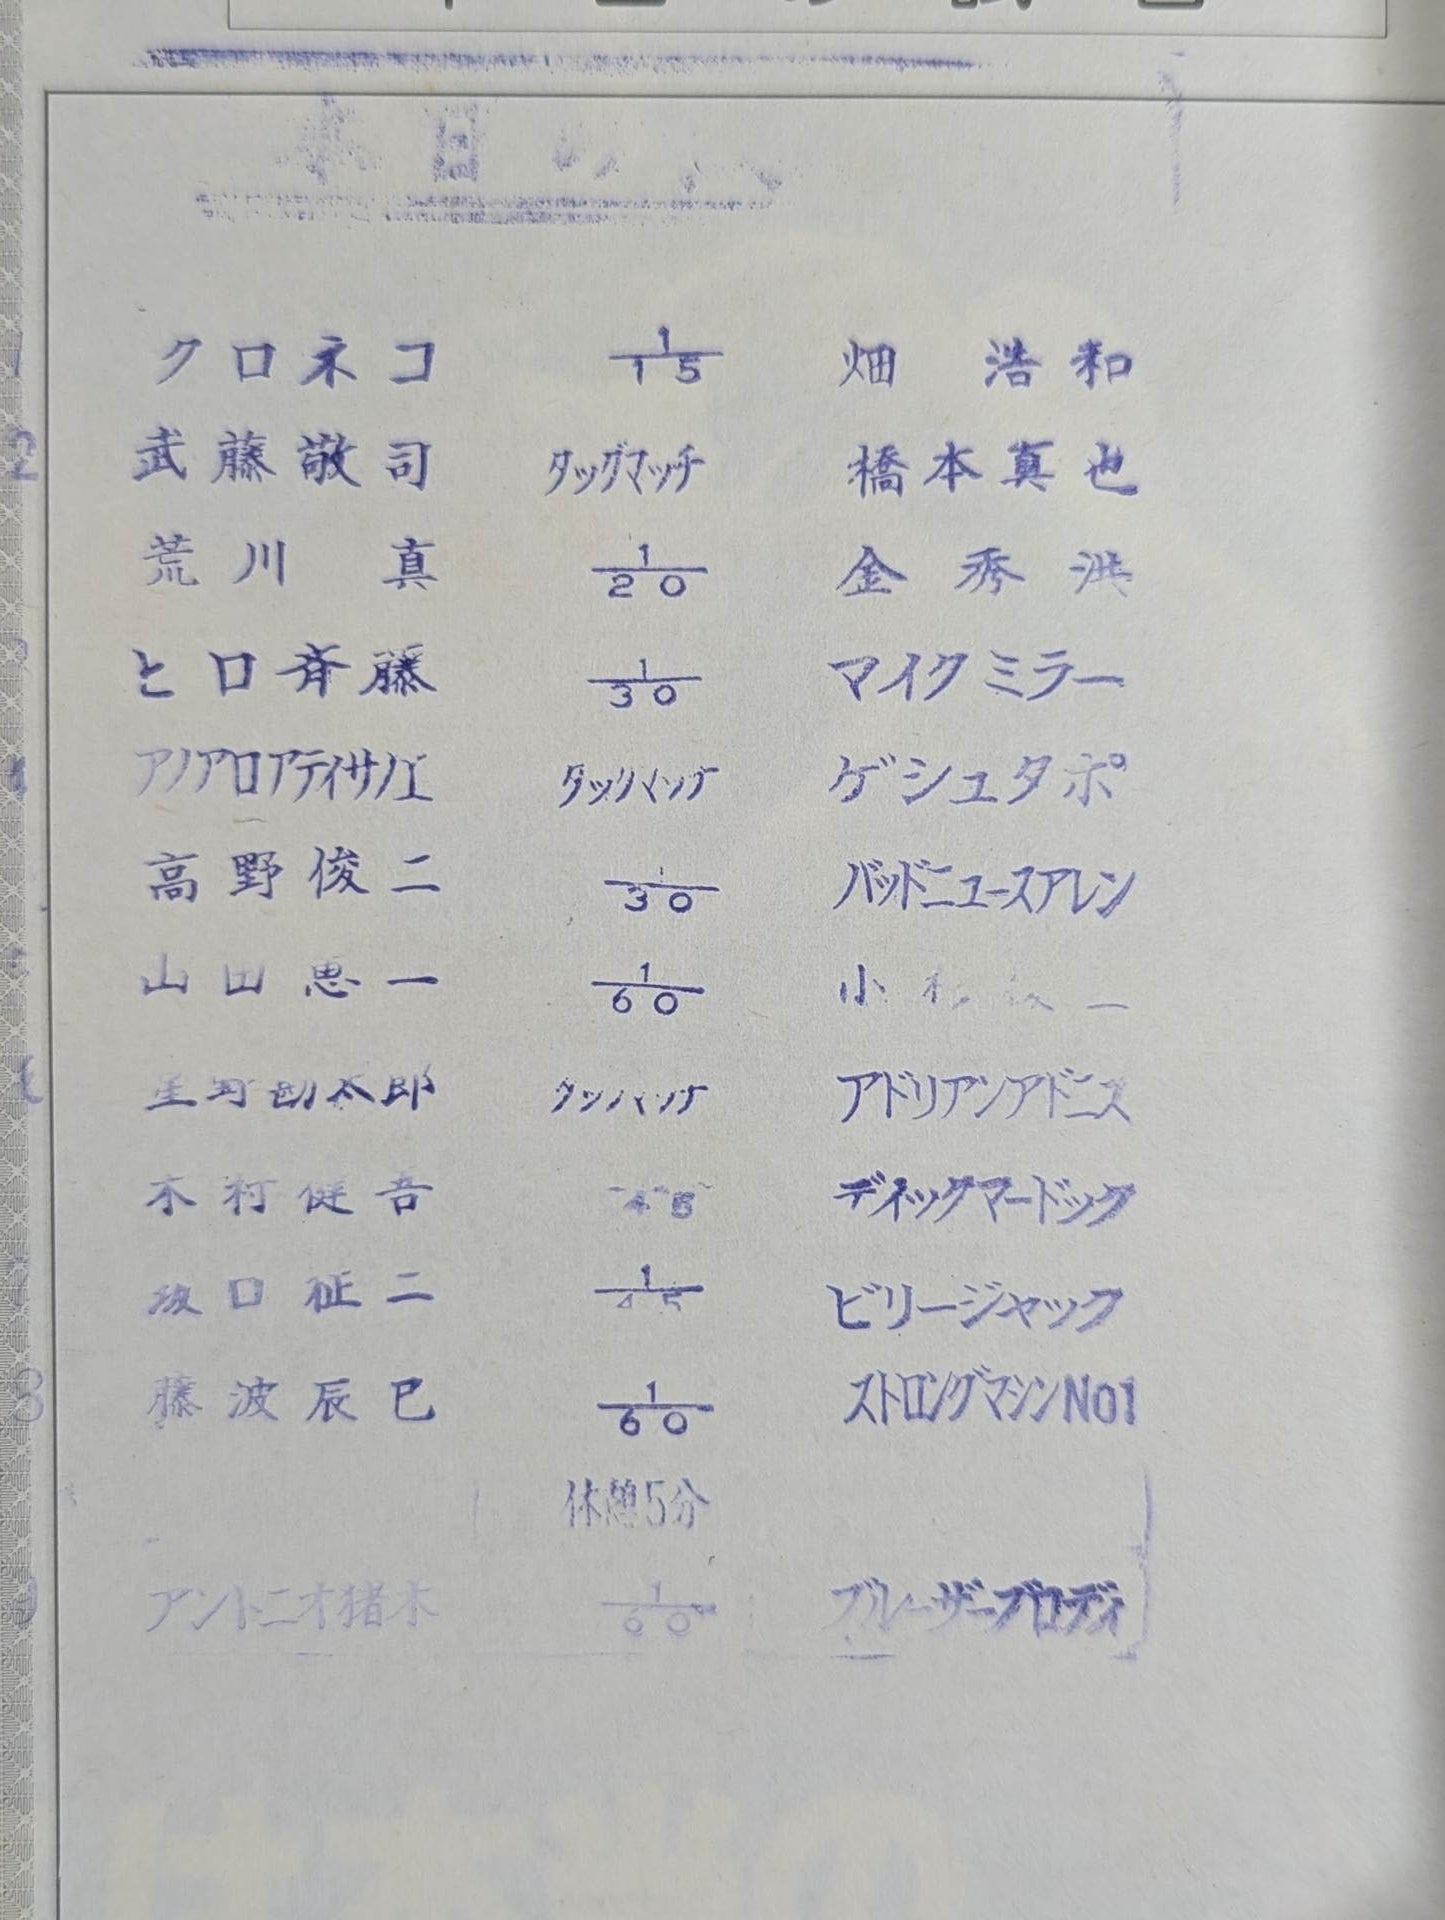 本日の
1 クロネコ 1/15 畑 浩和
2 武藤敬司 タッグマッチ 橋本真也
荒川 真 1/20 金秀洪
ヒロ斉藤 1/30 マイクミラー
アノアロアティサノエ タッグマッチ ゲシュタポ
高野俊二 1/30 バッドニュースアレン
山田恵一 1/60 小
星野勘太郎 タッグマッチ アドリアンアドニス
木村健吾 45 ディックマードック
坂口征二 1/45 ビリージャック
8 藤波辰巳 1/60 ストロングマシンNO1
休憩5分
アントニオ猪木 1/60 ブルーザーブロディ